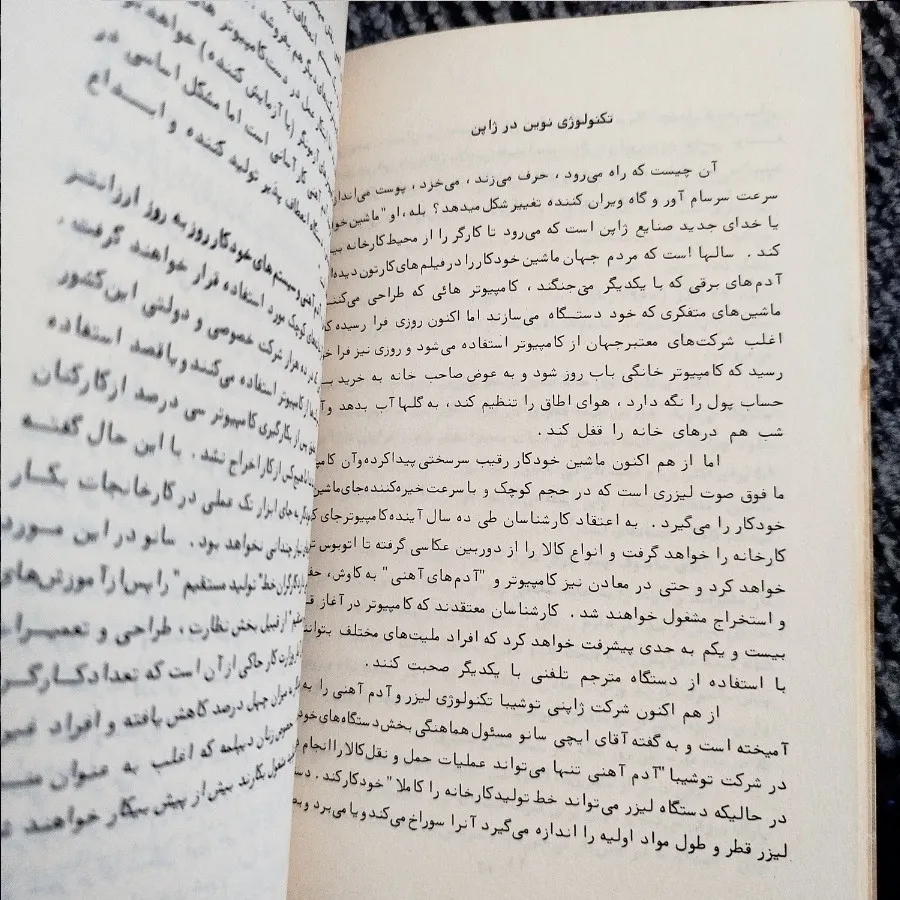 تکنولوژی نوین در ژاپن
آن چیست که راه می‌رود ، حرف می‌زند ، می‌خزد ، پوست می‌اندازد
سرعت سرسام آور و گاه ویران کننده تغییر شکل میدهد؟ بله ، او "ماشین
یا خدای جدید صنایع ژاپن است که می‌رود تا کارگر را از محیط کارخانه
کند . سالها است که مردم جهان ماشین خودکار را در فیلم‌های کارتون دیده‌اند
آدم‌های برقی که با یکدیگر می‌جنگند ، کامپیوتر هائی که طراحی می‌کنند
ماشین‌های متفکری که خود دستگاه می‌سازند اما اکنون روزی فرا رسیده که
اغلب شرکت‌های معتبر جهان از کامپیوتر استفاده می‌شود و روزی نیز فرا
رسید که کامپیوتر خانگی باب روز شود و به عوض صاحب خانه به خرید
حساب پول را نگه دارد ، هوای اطاق را تنظیم کند ، به گلها آب بدهد و
شب هم درهای خانه را قفل کند .
اما از هم اکنون ماشین خودکار رقیب سرسختی پیدا کرده و آن
ما فوق صوت لیزری است که در حجم کوچک و با سرعت خیره کننده جای ماشین
خودکار را می‌گیرد . به اعتقاد کارشناسان طی ده سال آینده کامپیوتر جای
کارخانه را خواهد گرفت و انواع کالا را از دوربین عکاسی گرفته تا اتوبوس
خواهد کرد و حتی در معادن نیز کامپیوتر و "آدم‌های آهنی" به کاوش ،
و استخراج مشغول خواهند شد . کارشناسان معتقدند که کامپیوتر در آغاز
بیست و یکم به حدی پیشرفت خواهد کرد که افراد ملیت‌های مختلف بتوانند
با استفاده از دستگاه مترجم تلفنی با یکدیگر صحبت کنند .
از هم اکنون شرکت ژاپنی توشیبا تکنولوژی لیزر و آدم آهنی را به
آمیخته است و به گفته آقای ایچی سانو مسئول هماهنگی بخش دستگاه‌های
در شرکت توشیبا "آدم آهنی تنها می‌تواند عملیات حمل و نقل کالا را انجام
در حالیکه دستگاه لیزر می‌تواند خط تولید کارخانه را کاملا" خودکار کند .
لیزر قطر و طول مواد اولیه را اندازه می‌گیرد آنرا سوراخ می‌کند و یا می‌برد و
دیگر هم بفروشد
در دست کامپیوتر
(یا آزمایش کننده) خواهد
کارآسانی است اما مشکل اساسی در
انعطاف پذیر تولید کننده و ابداع
آهنی و سیستم‌های خودکار روز به روز ارزانتر
کوچک مورد استفاده قرار خواهند گرفت .
ده هزار شرکت خصوصی و دولتی این کشور
از کامپیوتر استفاده می‌کنند و یا قصد استفاده
پس از بکارگیری کامپیوتر سی درصد از کارکنان
هیچ‌کس از کار اخراج نشد . با این حال گفته
به جای ابزار تک عملی در کارخانجات بکار
چندانی نخواهد بود . سانو در این مورد
کارگران خط "تولید مستقیم" را پس از آموزش‌های
از قبیل بخش نظارت ، طراحی و تعمیرات
وزارت کار حاکی از آن است که تعداد کارگران
به میزان چهل درصد کاهش یافته و افراد
زنان دیپلمه که اغلب به عنوان
بکارند بیش از پیش بیکار خواهند